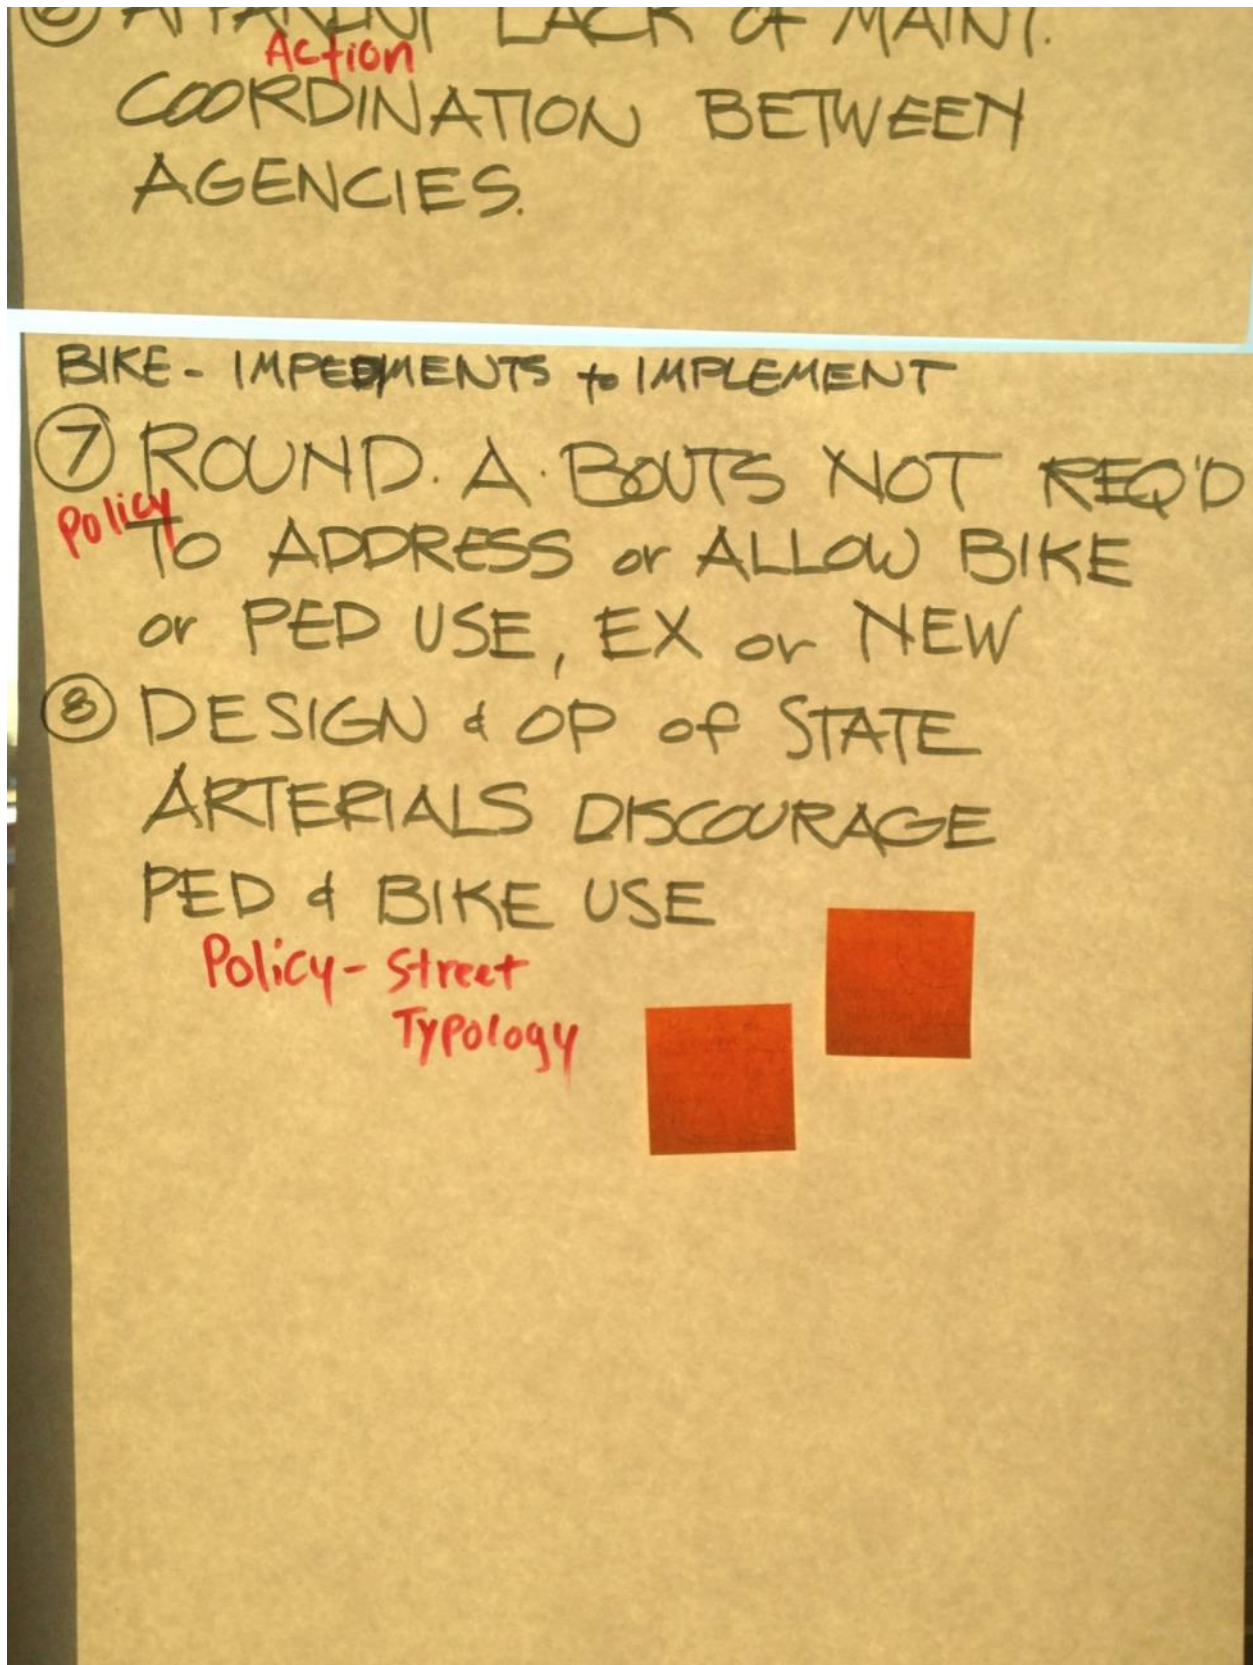 ⑥ APPARENT LACK OF MAINT.
Action
COORDINATION BETWEEN
AGENCIES.
BIKE - IMPEDIMENTS to IMPLEMENT
⑦ ROUND·A·BOUTS NOT REQ'D
Policy
TO ADDRESS or ALLOW BIKE
or PED USE, EX or NEW
⑧ DESIGN & OP of STATE
ARTERIALS DISCOURAGE
PED & BIKE USE
Policy - Street
Typology